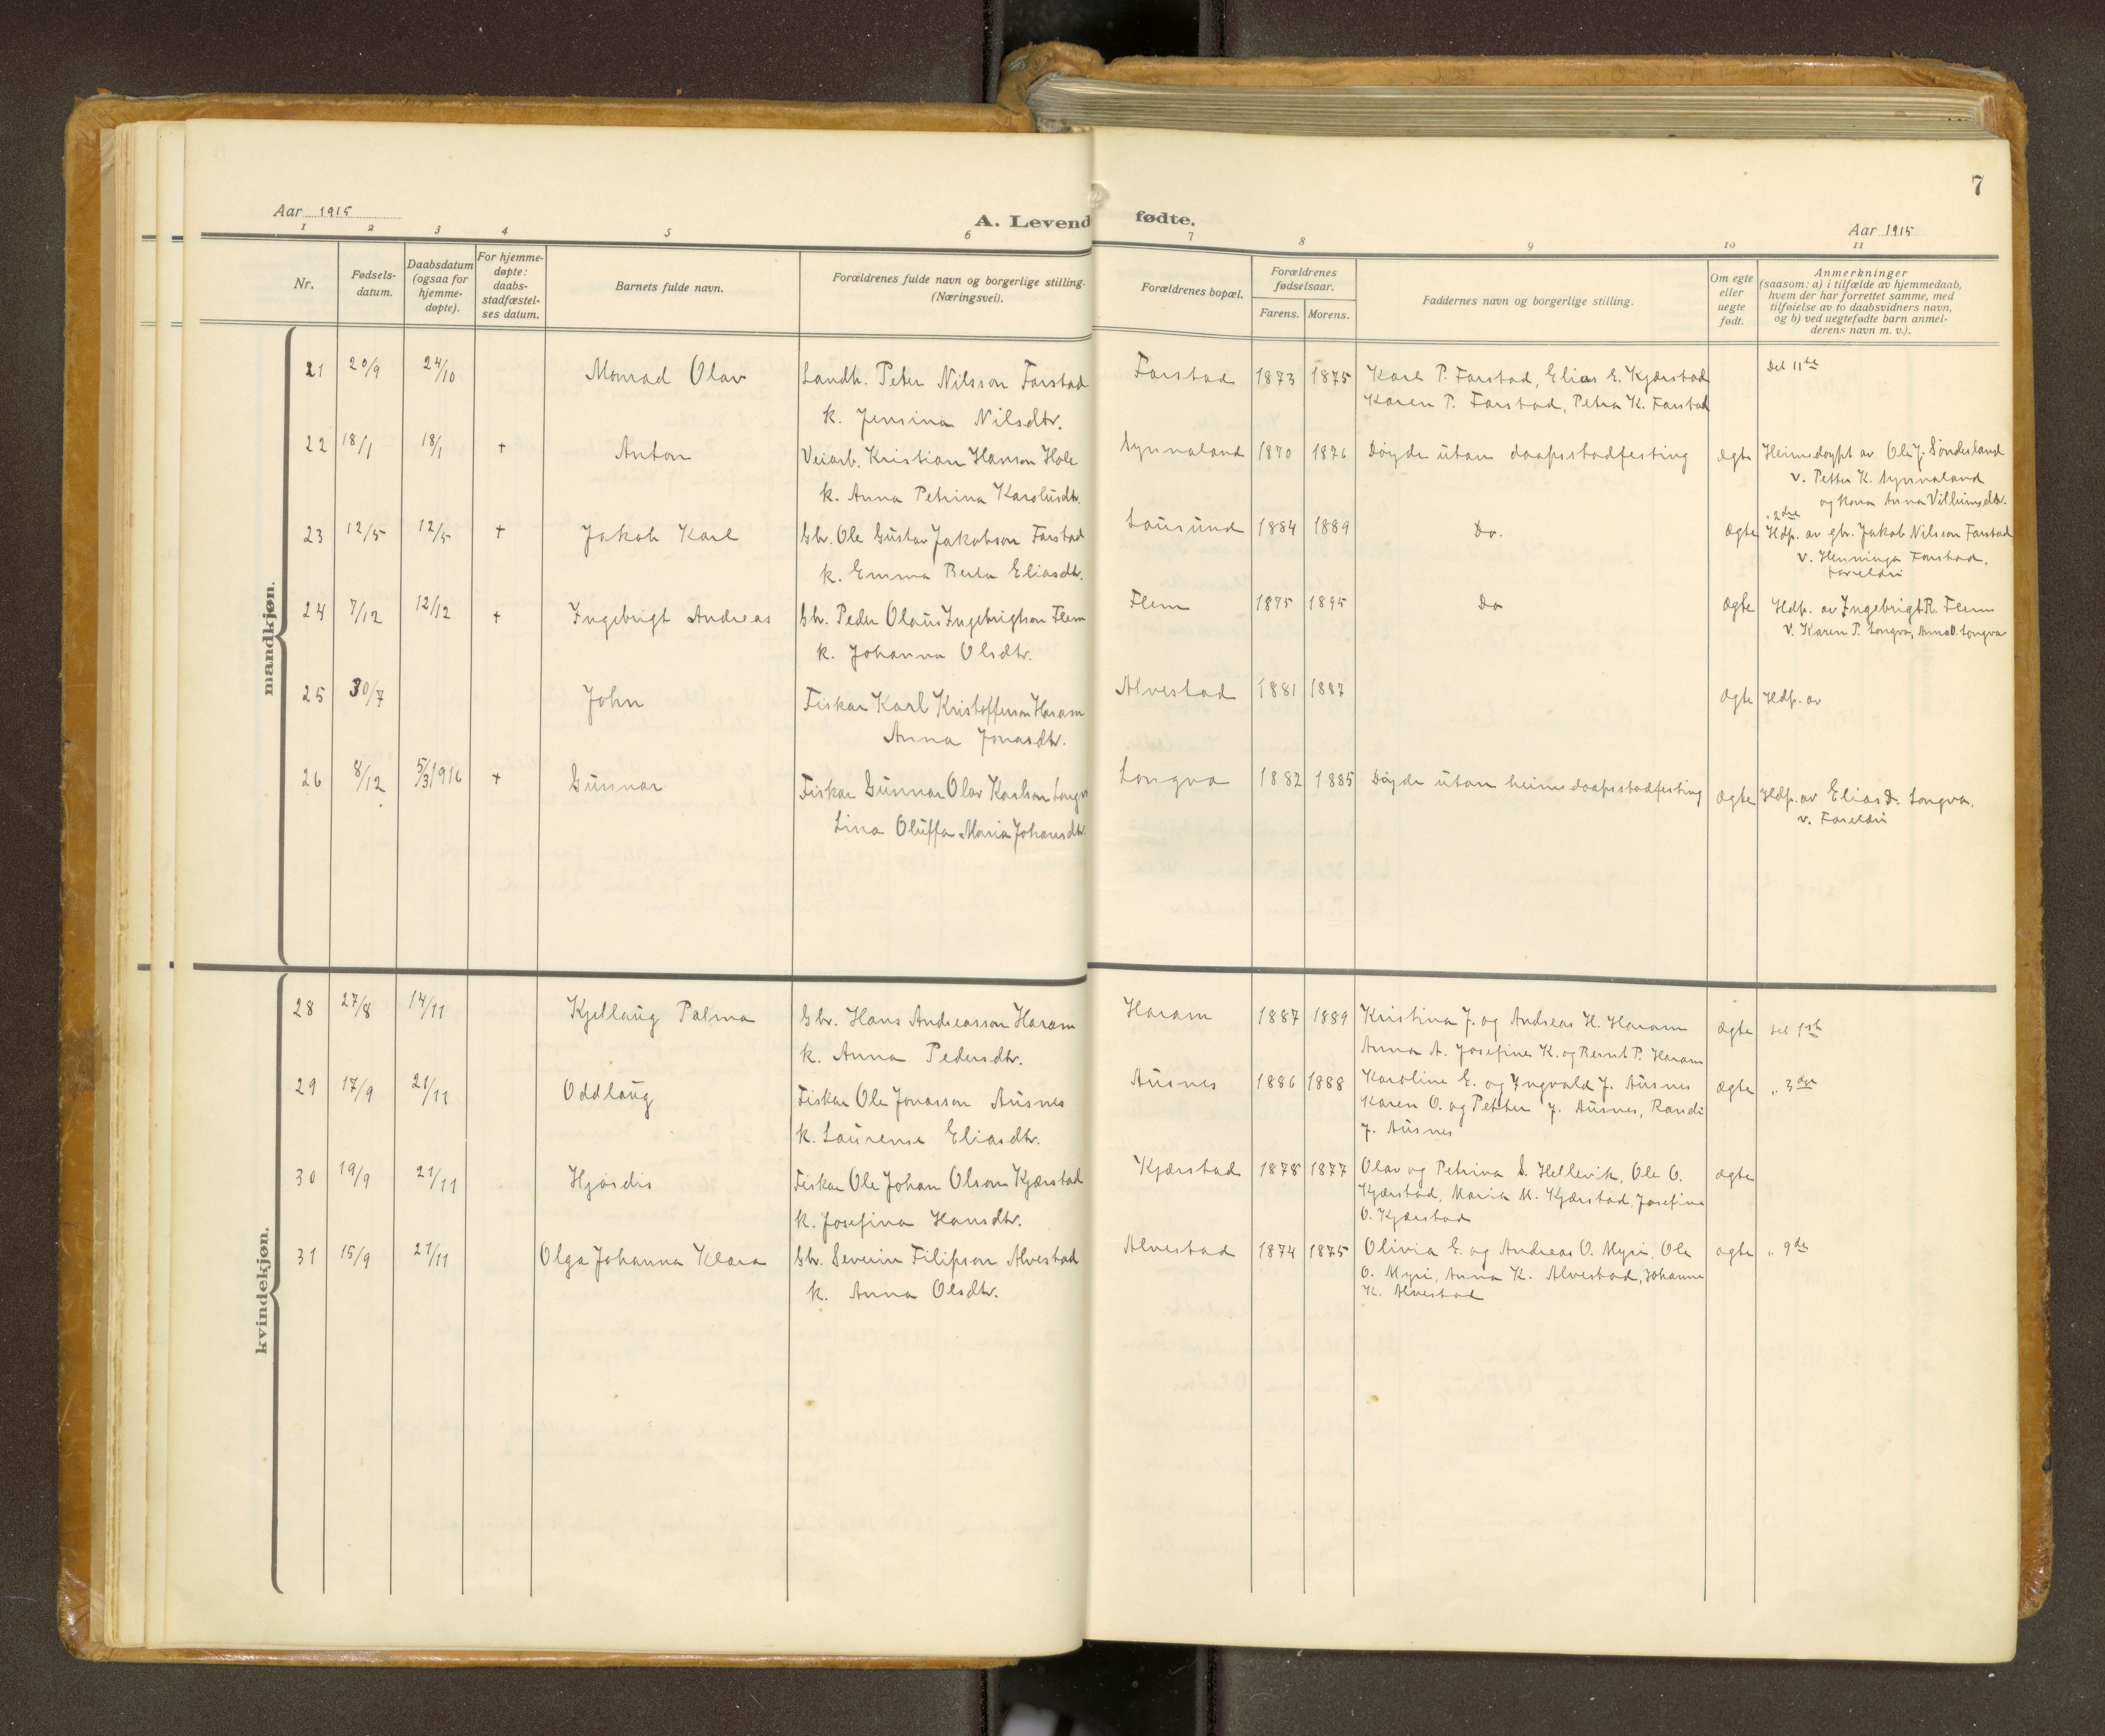 7
Aar 1915
A. Levend fødte.
Aar 1915
1 2 3 4 5 6 7 8 9 10 11
Nr.
Fødsels-
datum.
Daabsdatum
(ogsaa for
hjemme-
døpte).
For hjemme-
døpte:
daabs-
stadfæstel-
ses datum.
Barnets fulde navn.
Forældrenes fulde navn og borgerlige stilling.
(Næringsvei).
Forældrenes bopæl.
Forældrenes
fødselsaar.
Farens. Morens.
Faddernes navn og borgerlige stilling.
Om egte
eller
uegte
født.
Anmerkninger
(saasom: a) i tilfælde av hjemmedaab,
hvem der har forrettet samme, med
tilføielse av to daabsvidners navn,
og b) ved uegtefødte barn anmel-
derens navn m. v.).
mandkjøn.
21 20/9 24/10 Monrad Olav Landh. Peter Nilsson Farstad Farstad 1873 1875 Karl P. Farstad, Elias E. Kjærstad Del 11te
k. Jensina Nilsdtr. Karen P. Farstad, Petra K. Farstad
22 18/1 18/1 + Anton Veiarb. Kristian Hanson Hole Synnaland 1870 1876 Døyde utan daapsstadfesting ægte Heimedøypt av Ole J. Sønderland
k. Anna Petrina Karolusdtr. v. Petter K. Synnaland
og kona Anna Villumsdtr.
" 2dre
23 12/5 12/5 + Jakob Karl Gbr. Ole Gustav Jakobson Farstad Lausund 1884 1889 Do. Ægte Hdp. av gbr. Jakob Nilsson Farstad
k. Emma Berta Eliasdtr. v. Henninga Farstad.
Foreldri
24 7/12 12/12 + Ingebrigt Andreas Gbr. Peder Olaus Ingebrigtson Flem Flem 1875 1895 Do Ægte Hdp. av Ingebrigt R. Flem
k. Johanna Olsdtr. v. Karen P. Longva, Anna O. Longva
25 30/7 John Fiskar Karl Kristofferson Haram Alvestad 1881 1887 Ægte Hdp. av
Anna Jonasdtr.
26 8/12 5/3 1916 + Gunnar Fiskar Gunnar Olav Karlson Longva Longva 1882 1885 Døyde utan heimedaapsstadfesting Ægte Hdp. av Elias D. Longva.
Lina Oluffa Maria Johansdtr. v. Foreldri
kvindekjøn.
28 27/8 14/11 Kjellaug Palma Gbr. Hans Andreasson Haram Haram 1887 1889 Kristina J. og Andreas H. Haram Ægte Del 1st
k. Anna Pedersdtr. Anna A. Josefines K. og Bernt P. Haram
29 17/9 21/11 Oddlaug Fiskar Ole Jonasson Ausnes Ausnes 1886 1888 Karoline E. og Ingvald J. Ausnes Ægte " 3dje
k. Laurense Eliasdtr. Karen O. og Petter J. Ausnes, Randi
J. Ausnes
30 19/9 21/11 Hjørdis Fiskar Ole Johan Olson Kjærstad Kjærstad 1878 1877 Olav og Petrina S. Hellevik, Ole O. Ægte
k. Josefina Hansdtr. Kjærstad, Maria M. Kjærstad, Josefine
O. Kjærstad
31 15/9 21/11 Olga Johanna Klara Gbr. Severin Filipson Alvestad Alvestad 1874 1875 Olivia E. og Andreas O. Myri, Ole Ægte " 9de
k. Anna Olsdtr. O. Myri, Anna K. Alvestad, Johanne
K. Alvestad